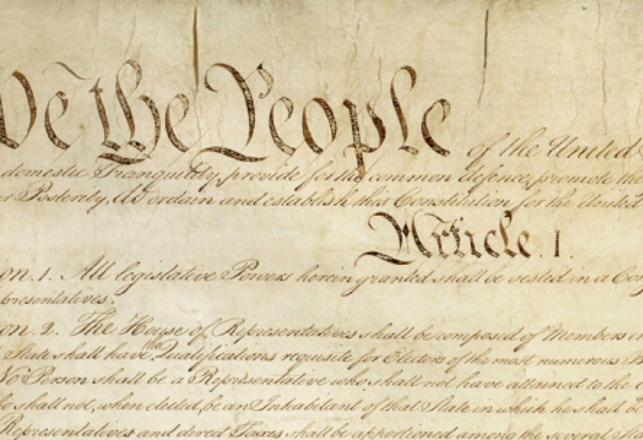 We the People of the United
domestic Tranquility, provide for the common defence, promote the
Posterity, do ordain and establish this Constitution for the United
Article. I.
on. 1. All legislative Powers herein granted shall be vested in a Co
presentatives.
on. 2. The House of Representatives shall be composed of Members
State shall have the Qualifications requisite for Electors of the most numerous
No Person shall be a Representative who shall not have attained to the
shall not, when elected, be an Inhabitant of that State in which he shall be
Representatives and direct Taxes shall be apportioned among the several